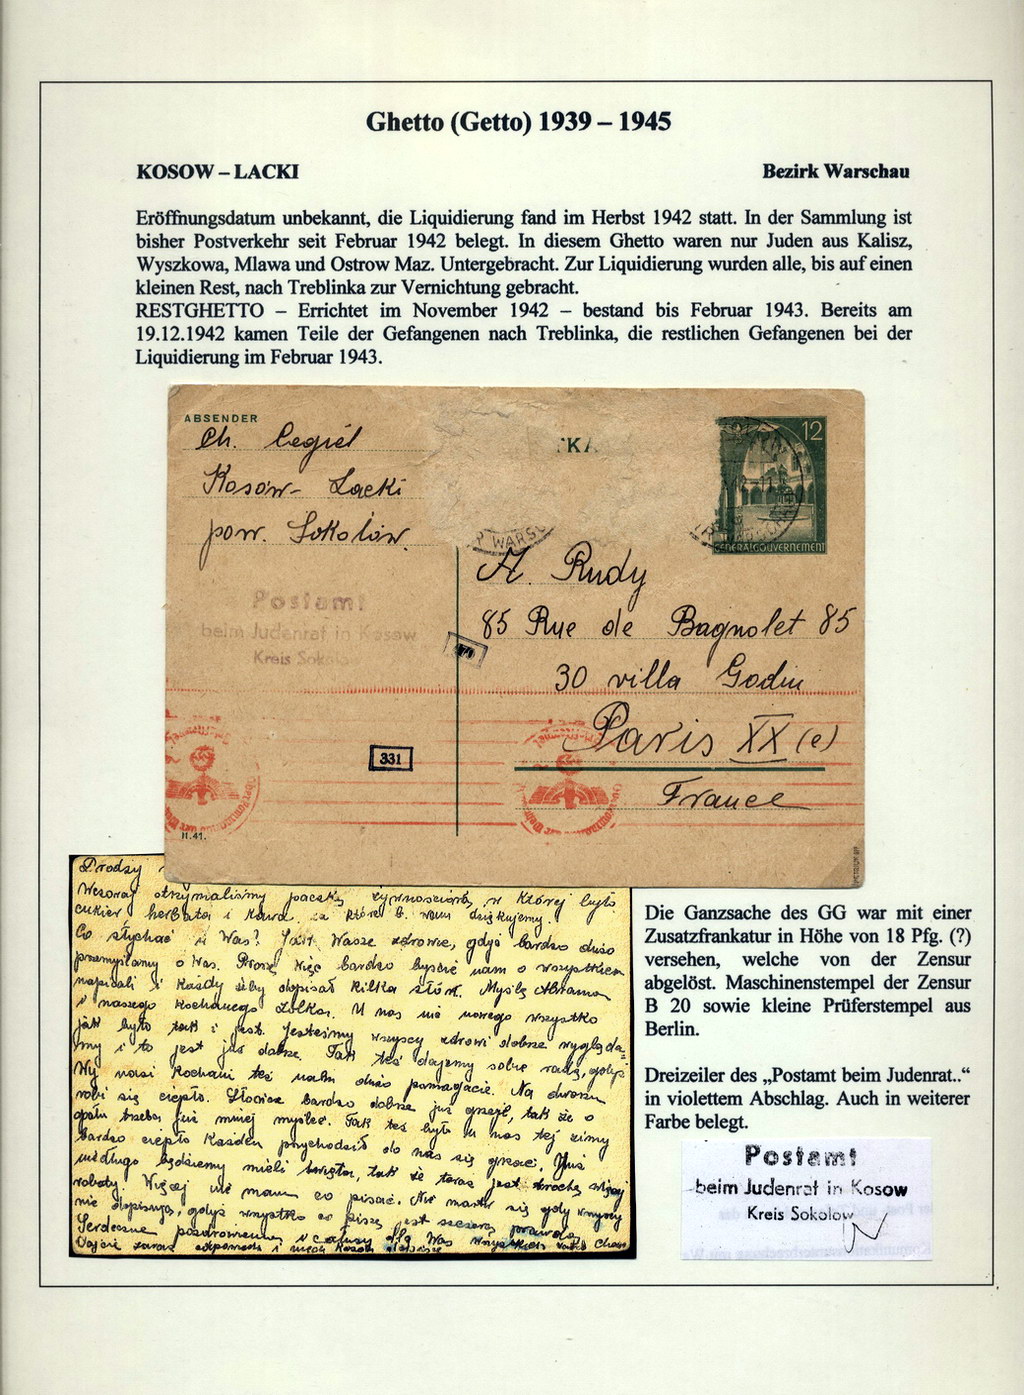 Ghetto (Getto) 1939 – 1945
KOSOW – LACKI
Bezirk Warschau
Eröffnungsdatum unbekannt, die Liquidierung fand im Herbst 1942 statt. In der Sammlung ist
bisher Postverkehr seit Februar 1942 belegt. In diesem Ghetto waren nur Juden aus Kalisz,
Wyszkowa, Mlawa und Ostrow Maz. Untergebracht. Zur Liquidierung wurden alle, bis auf einen
kleinen Rest, nach Treblinka zur Vernichtung gebracht.
RESTGHETTO – Errichtet im November 1942 – bestand bis Februar 1943. Bereits am
19.12.1942 kamen Teile der Gefangenen nach Treblinka, die restlichen Gefangenen bei der
Liquidierung im Februar 1943.
ABSENDER
Ch. Cegiel
Kosów- Lacki
pow. Sokołów.
TKA
12
GENERALGOUVERNEMENT
WARSC
Postamt
beim Judenrat in Kosow
Kreis Sokolow
A. Rudy
85 Rue de Bagnolet 85
30 villa Godin
Paris XX (e)
France
331
II.41.
Drodzy
Wczoraj otrzymaliśmy paczkę żywnościową, w której było
cukier herbata i kawa. za które b. wam dziękujemy.
Co słychać u Was? Jak Wasze zdrowie, gdyż bardzo dużo
przemyślamy o Was. Proszę więc bardzo byście nam o wszystkiem
napisali i każdy żeby dopisał kilka słów. Myślę Abrama
i naszego kochanego U nas nic nowego wszystko
jak było tak i jest. Jesteśmy wszyscy zdrowi dobrze wygląda-
my i to jest już dobrze. Tak też dajemy sobie radę, gdyż
Wy nasi kochani też nam dużo pomagacie. Na dworzu
robi się ciepło. Słońce bardzo dobrze już grzeje, tak że o
opału trzeba już mniej myśleć. Tak też było u nas tej zimy
bardzo ciepło każden przychodził do nas się grzać. Już
niedługo będziemy mieli święta, tak że teraz jest trochę więcej
roboty. Więcej nie mam co pisać. Nie martw się gdy wszyscy
nie dopisują, gdyż wszystko co piszę jest szczerą prawdą
Serdeczne pozdrowienia i całusy dla Was wszystkich
zaraz odpowiedź i niech
Die Ganzsache des GG war mit einer
Zusatzfrankatur in Höhe von 18 Pfg. (?)
versehen, welche von der Zensur
abgelöst. Maschinenstempel der Zensur
B 20 sowie kleine Prüferstempel aus
Berlin.
Dreizeiler des „Postamt beim Judenrat..“
in violettem Abschlag. Auch in weiterer
Farbe belegt.
Postamt
beim Judenrat in Kosow
Kreis Sokolow